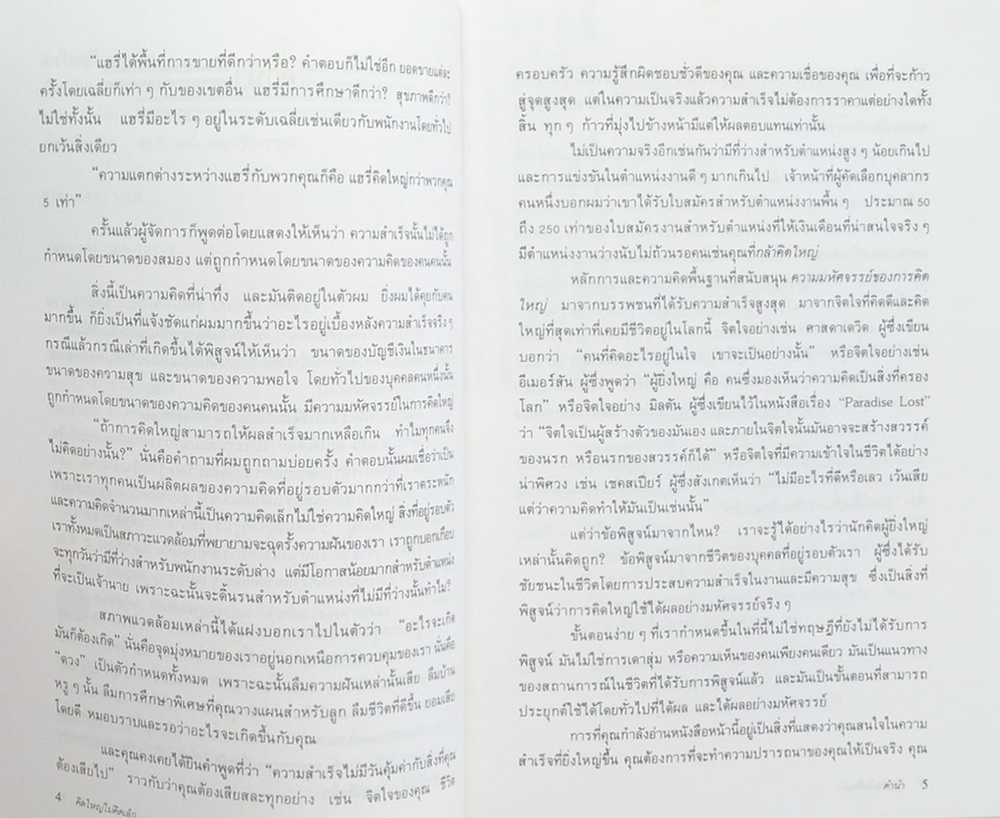 "แฮรี่ได้พื้นที่การขายที่ดีกว่าหรือ? คำตอบก็ไม่ใช่อีก ยอดขายแต่ละ
ครั้งโดยเฉลี่ยก็เท่า ๆ กับของเขตอื่น แฮรี่มีการศึกษาดีกว่า? สุขภาพดีกว่า?
ไม่ใช่ทั้งนั้น แฮรี่มีอะไร ๆ อยู่ในระดับเฉลี่ยเช่นเดียวกับพนักงานโดยทั่วไป
ยกเว้นสิ่งเดียว
"ความแตกต่างระหว่างแฮรี่กับพวกคุณก็คือ แฮรี่คิดใหญ่กว่าพวกคุณ
5 เท่า"
ครั้นแล้วผู้จัดการก็พูดต่อโดยแสดงให้เห็นว่า ความสำเร็จนั้นไม่ได้ถูก
กำหนดโดยขนาดของสมอง แต่ถูกกำหนดโดยขนาดของความคิดของคนคนนั้น
สิ่งนี้เป็นความคิดที่น่าทึ่ง และมันติดอยู่ในตัวผม ยิ่งผมได้คุยกับคน
มากขึ้น ก็ยิ่งเป็นที่แจ้งชัดแก่ผมมากขึ้นว่าอะไรอยู่เบื้องหลังความสำเร็จจริง ๆ
กรณีแล้วกรณีเล่าที่เกิดขึ้นได้พิสูจน์ให้เห็นว่า ขนาดของบัญชีเงินในธนาคาร
ขนาดของความสุข และขนาดของความพอใจ โดยทั่วไปของบุคคลคนหนึ่งนั้น
ถูกกำหนดโดยขนาดของความคิดของคนคนนั้น มีความมหัศจรรย์ในการคิดใหญ่
"ถ้าการคิดใหญ่สามารถให้ผลสำเร็จมากเหลือเกิน ทำไมทุกคนจึง
ไม่คิดอย่างนั้น?" นั่นคือคำถามที่ผมถูกถามบ่อยครั้ง คำตอบนั้นผมเชื่อว่าเป็น
เพราะเราทุกคนเป็นผลิตผลของความคิดที่อยู่รอบตัวมากกว่าที่เราตระหนัก
และความคิดจำนวนมากเหล่านี้เป็นความคิดเล็กไม่ใช่ความคิดใหญ่ สิ่งที่อยู่รอบตัว
เราทั้งหมดเป็นสภาวะแวดล้อมที่พยายามจะฉุดรั้งความฝันของเรา เราถูกบอกเกือบ
จะทุกวันว่ามีที่ว่างสำหรับพนักงานระดับล่าง แต่มีโอกาสน้อยมากสำหรับตำแหน่ง
ที่จะเป็นเจ้านาย เพราะฉะนั้นจะดิ้นรนสำหรับตำแหน่งที่ไม่มีที่ว่างนั้นทำไม?
สภาพแวดล้อมเหล่านี้ได้แฝงบอกเราไปในตัวว่า "อะไรจะเกิด
มันก็ต้องเกิด" นั่นคือจุดมุ่งหมายของเราอยู่นอกเหนือการควบคุมของเรา นั่นคือ
"ดวง" เป็นตัวกำหนดทั้งหมด เพราะฉะนั้นลืมความฝันเหล่านั้นเสีย ลืมบ้าน
หรู ๆ นั้น ลืมการศึกษาพิเศษที่คุณวางแผนสำหรับลูก ลืมชีวิตที่ดีขึ้น ยอมเสีย
โดยดี หมอบราบและรอว่าอะไรจะเกิดขึ้นกับคุณ
และคุณคงเคยได้ยินคำพูดที่ว่า "ความสำเร็จไม่มีวันคุ้มค่ากับสิ่งที่คุณ
ต้องเสียไป" ราวกับว่าคุณต้องเสียสละทุกอย่าง เช่น จิตใจของคุณ ชีวิต
4 คิดใหญ่ไม่คิดเล็ก
ครอบครัว ความรู้สึกผิดชอบชั่วดีของคุณ และความเชื่อของคุณ เพื่อที่จะก้าว
สู่จุดสูงสุด แต่ในความเป็นจริงแล้วความสำเร็จไม่ต้องการราคาแต่อย่างใดทั้ง
สิ้น ทุก ๆ ก้าวที่มุ่งไปข้างหน้ามีแต่ให้ผลตอบแทนเท่านั้น
ไม่เป็นความจริงอีกเช่นกันว่ามีที่ว่างสำหรับตำแหน่งสูง ๆ น้อยเกินไป
และการแข่งขันในตำแหน่งงานดี ๆ มากเกินไป เจ้าหน้าที่ผู้คัดเลือกบุคลากร
คนหนึ่งบอกผมว่าเขาได้รับใบสมัครสำหรับตำแหน่งงานพื้น ๆ ประมาณ 50
ถึง 250 เท่าของใบสมัครงานสำหรับตำแหน่งที่ให้เงินเดือนที่น่าสนใจจริง ๆ
มีตำแหน่งงานว่างนับไม่ถ้วนรอคนเช่นคุณที่กล้าคิดใหญ่
หลักการและความคิดพื้นฐานที่สนับสนุน ความมหัศจรรย์ของการคิด
ใหญ่ มาจากบรรพชนที่ได้รับความสำเร็จสูงสุด มาจากจิตใจที่คิดดีและคิด
ใหญ่ที่สุดเท่าที่เคยมีชีวิตอยู่ในโลกนี้ จิตใจอย่างเช่น ศาสดาเดวิด ผู้ซึ่งเขียน
บอกว่า "คนที่คิดอะไรอยู่ในใจ เขาจะเป็นอย่างนั้น" หรือจิตใจอย่างเช่น
อีเมอร์สัน ผู้ซึ่งพูดว่า "ผู้ยิ่งใหญ่ คือ คนซึ่งมองเห็นว่าความคิดเป็นสิ่งที่ครอง
โลก" หรือจิตใจอย่าง มิลตัน ผู้ซึ่งเขียนไว้ในหนังสือเรื่อง "Paradise Lost"
ว่า "จิตใจเป็นผู้สร้างตัวของมันเอง และภายในจิตใจนั้นมันอาจจะสร้างสวรรค์
ของนรก หรือนรกของสวรรค์ก็ได้" หรือจิตใจที่มีความเข้าใจในชีวิตได้อย่าง
น่าพิศวง เช่น เชคสเปียร์ ผู้ซึ่งสังเกตเห็นว่า "ไม่มีอะไรที่ดีหรือเลว เว้นเสีย
แต่ว่าความคิดทำให้มันเป็นเช่นนั้น"
แต่ว่าข้อพิสูจน์มาจากไหน? เราจะรู้ได้อย่างไรว่านักคิดผู้ยิ่งใหญ่
เหล่านั้นคิดถูก? ข้อพิสูจน์มาจากชีวิตของบุคคลที่อยู่รอบตัวเรา ผู้ซึ่งได้รับ
ชัยชนะในชีวิตโดยการประสบความสำเร็จในงานและมีความสุข ซึ่งเป็นสิ่งที่
พิสูจน์ว่าการคิดใหญ่ใช้ได้ผลอย่างมหัศจรรย์จริง ๆ
ขั้นตอนง่าย ๆ ที่เรากำหนดขึ้นในที่นี้ไม่ใช่ทฤษฎีที่ยังไม่ได้รับการ
พิสูจน์ มันไม่ใช่การเดาสุ่ม หรือความเห็นของคนเพียงคนเดียว มันเป็นแนวทาง
ของสถานการณ์ในชีวิตที่ได้รับการพิสูจน์แล้ว และมันเป็นขั้นตอนที่สามารถ
ประยุกต์ใช้ได้โดยทั่วไปที่ได้ผล และได้ผลอย่างมหัศจรรย์
การที่คุณกำลังอ่านหนังสือหน้านี้อยู่เป็นสิ่งที่แสดงว่าคุณสนใจในความ
สำเร็จที่ยิ่งใหญ่ขึ้น คุณต้องการที่จะทำความปรารถนาของคุณให้เป็นจริง คุณ
คำนำ 5